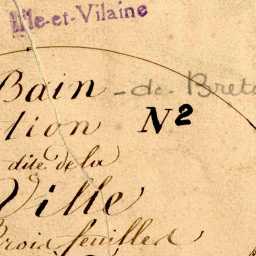 Ille-et-Vilaine
Bain - de Bret
tion N2
dite de la
Ville
trois feuilles